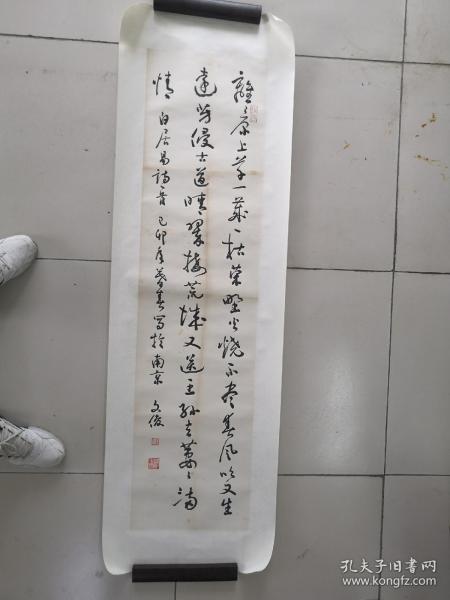 離〻原上草一歲一枯榮野火燒不盡春風吹又生
遠芳侵古道晴翠接荒城又送王孫去萋〻滿
情 白居易詩一首 己卯年暮春寫於南京 文俊
孔夫子旧书网
www.kongfz.com